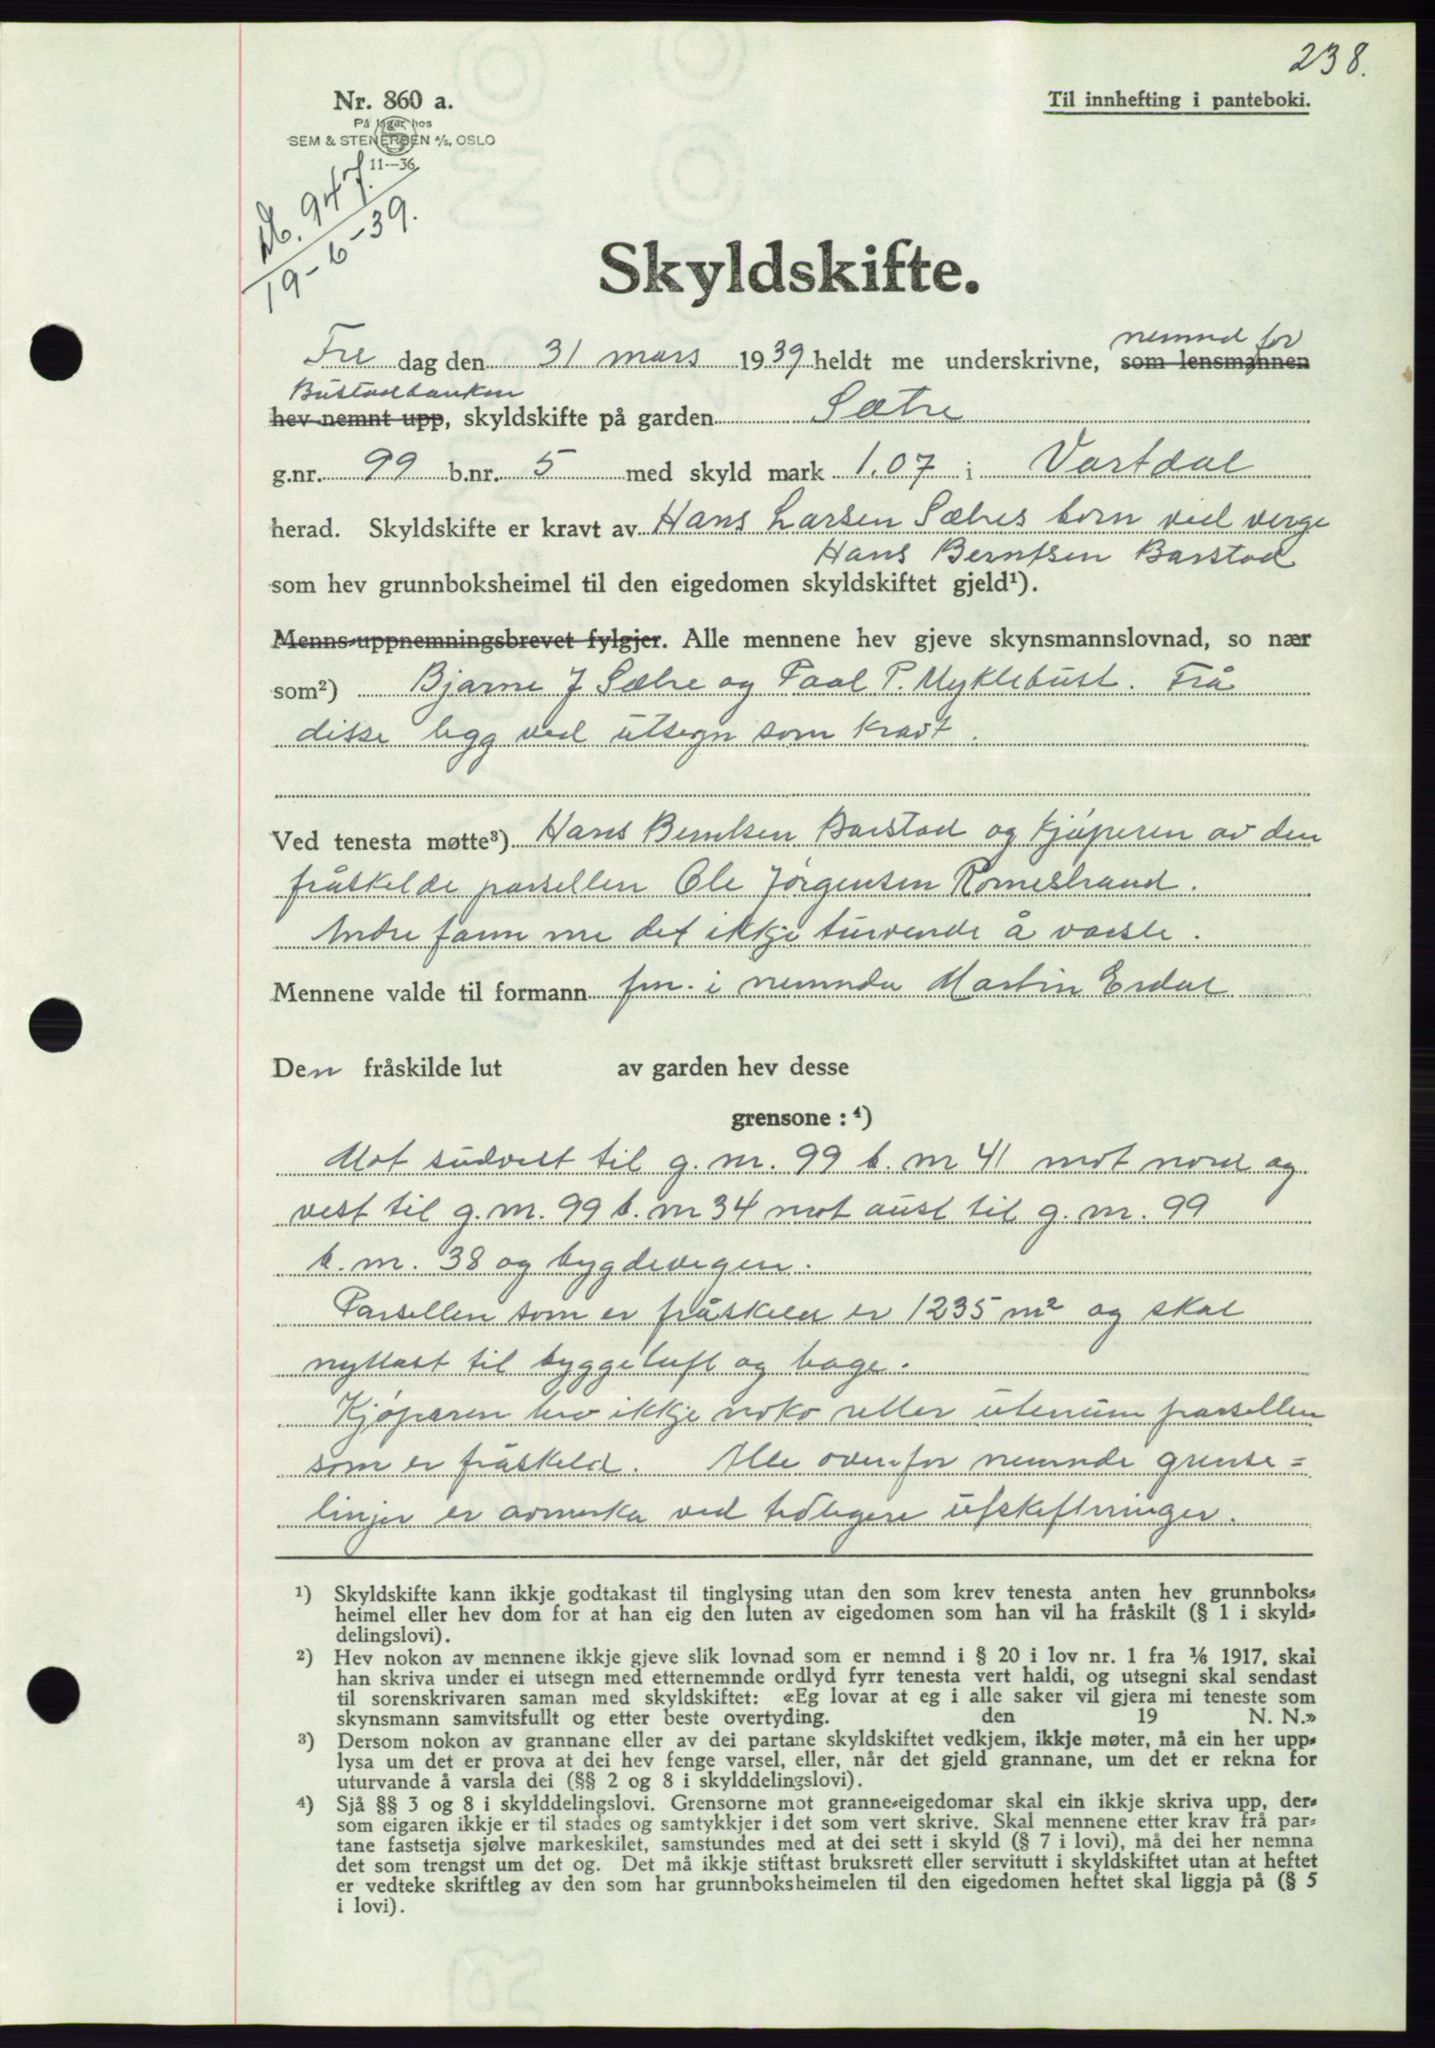 238.
Nr. 860 a.
På lager hos
SEM & STENERSEN A/S, OSLO
11—36
Til innhefting i panteboki.
Db. 947.
19-6-39.
Skyldskifte.
nemnd for
Fre dag den 31 mars 1939 heldt me underskrivne, som lensmannen
Bustadbanken
hev nemnt upp, skyldskifte på garden Sætre
g.nr. 99 b.nr. 5 med skyld mark 1.07 i Vartdal
herad. Skyldskifte er kravt av Hans Larsen Sætres born ved verge
Hans Berntsen Barstad
som hev grunnboksheimel til den eigedomen skyldskiftet gjeld¹).
Menns-uppnemningsbrevet fylgjer. Alle mennene hev gjeve skynsmannslovnad, so nær
som²) Bjarne J Sætre og Paal P. Myklebust. Frå
disse legg ved utsegn som kravt.
Ved tenesta møtte³) Hans Berntsen Barstad og kjøperen av den
fråskelde parsellen Ole Jørgensen Romestrand.
Andre fann me det ikkje turvende å varsle.
Mennene valde til formann fm. i nemnda Martin Erdal
Den fråskilde lut av garden hev desse
grensone : ⁴)
Mot sudvest til g. nr. 99 b. nr 41 mot nord og
vest til g. nr. 99 b. nr 34 mot aust til g. nr. 99
b. nr. 38 og bygdevegen.
Parsellen som er fråskeld er 1235 m² og skal
nyttast til byggetuft og hage.
Kjøparen hev ikkje noko retter utenum parsellen
som er fråskeld. Alle ovenfor nemnde grense=
linjer er avmerka ved tidligere utskiftninger.
¹) Skyldskifte kann ikkje godtakast til tinglysing utan den som krev tenesta anten hev grunnboks=
heimel eller hev dom for at han eig den luten av eigedomen som han vil ha fråskilt (§ 1 i skyld=
delingslovi).
²) Hev nokon av mennene ikkje gjeve slik lovnad som er nemnd i § 20 i lov nr. 1 fra 1/6 1917, skal
han skriva under ei utsegn med etternemnde ordlyd fyrr tenesta vert haldi, og utsegni skal sendast
til sorenskrivaren saman med skyldskiftet: «Eg lovar at eg i alle saker vil gjera mi teneste som
skynsmann samvitsfullt og etter beste overtyding. den 19 N. N.»
³) Dersom nokon av grannane eller av dei partane skyldskiftet vedkjem, ikkje møter, må ein her upp=
lysa um det er prova at dei hev fenge varsel, eller, når det gjeld grannane, um det er rekna for
uturvande å varsla dei (§§ 2 og 8 i skylddelingslovi).
⁴) Sjå §§ 3 og 8 i skylddelingslovi. Grensorne mot granne=eigedomar skal ein ikkje skriva upp, der=
som eigaren ikkje er til stades og samtykkjer i det som vert skrive. Skal mennene etter krav frå par=
tane fastsetja sjølve markeskilet, samstundes med at dei sett i skyld (§ 7 i lovi), må dei her nemna
det som trengst um det og. Det må ikkje stiftast bruksrett eller servitutt i skyldskiftet utan at heftet
er vedteke skriftleg av den som har grunnboksheimelen til den eigedomen heftet skal liggja på (§ 5
i lovi).